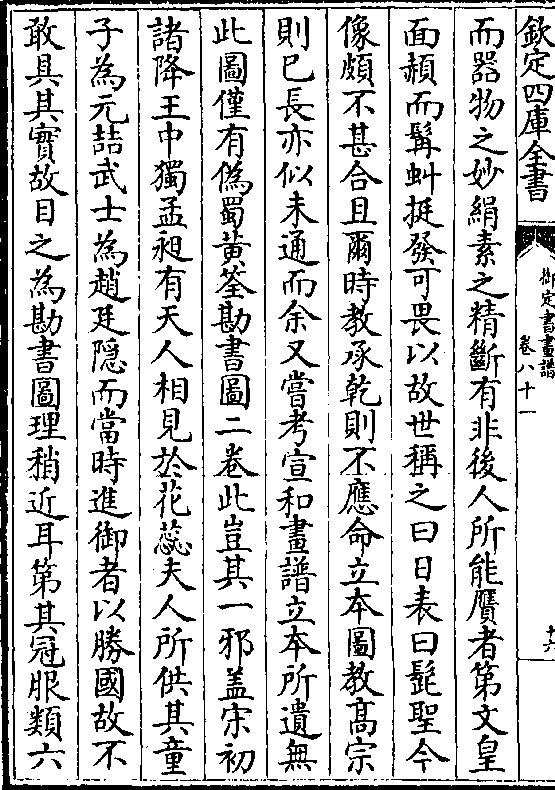 欽定四庫全書
御定書畫譜
卷八十一
而器物之妙絹素之精斷有非後人所能贋者第文皇
面頳而髯虯挺發可畏以故世稱之曰日表曰髭聖今
像頗不甚合且爾時教承乾則不應命立本圖教髙宗
則已長亦似未通而余又嘗考宣和畫譜立本所遺無
此圖僅有偽蜀黄筌勘書圖二卷此豈其一邪盖宋初
諸降王中獨孟昶有天人相見於花蕊夫人所供其童
子為元喆武士為趙廷隠而當時進御者以勝國故不
敢具其實故目之為勘書圖理稍近耳第其冠服類六